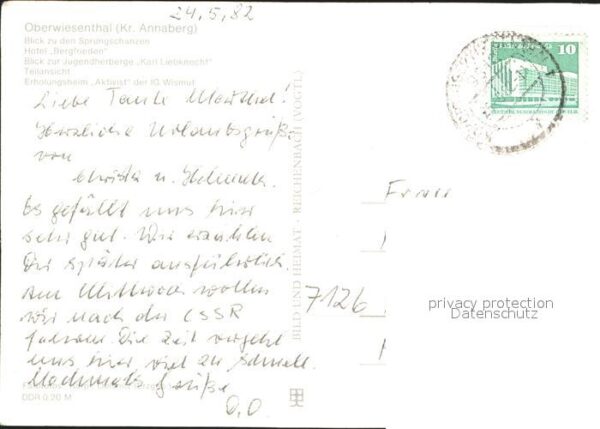 24.5.82
Oberwiesenthal (Kr. Annaberg)
Blick zu den Sprungschanzen
Hotel „Bergfrieden“
Blick zur Jugendherberge „Karl Liebknecht“
Teilansicht
Erholungsheim „Aktivist“ der IG Wismut
Liebe Tante !
Herzliche Urlaubsgrüße
von
Christa u.
Es gefällt uns hier
sehr gut. Wir erzählen
Dir später ausführlich.
Am Mittwoch wollen
wir nach der CSSR
fahren. Die Zeit vergeht
uns hier viel zu schnell.
Nochmals Grüße
D. O.
DDR 0,20 M
BILD UND HEIMAT · REICHENBACH (VOGTL)
10
Frau
7126
privacy protection
Datenschutz